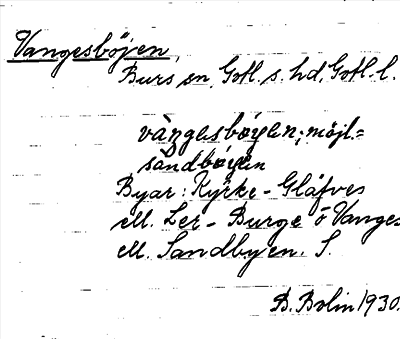 Vangesböjen,
Burs sn, Gotl. s. hd, Gotl. l.
vàŋgesbøyen; möjl. =
sandbøyen
Byar: Kyrke - Gläfves
ell. Ler - Burge o Vanges
ell. Sandbyen. S.
B. Bolin 1930.